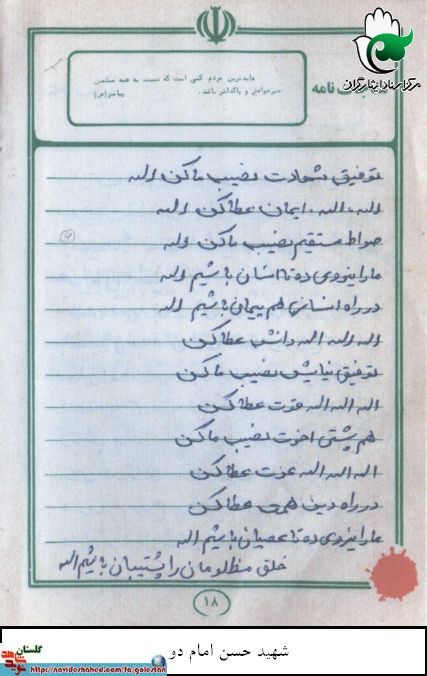 مرکز اسناد ایثارگران
نامه
عابدترین مردم کسی است که نسبت به همه مسلمین
خیرخواه‌تر و پاکدلتر باشد.
پیامبر(ص)
توفیق شهادت نصیب ما کن اله
اله، اله، ایمان عطا کن اله
۴
صراط مستقیم نصیب ما کن اله
ما را نیروی ده تا انسان باشیم اله
در راه انسانی هم پیمان باشیم اله
اله اله اله دانش عطا کن
توفیق نیایش نصیب ما کن
اله اله اله قوت عطا کن
هم پشتی اخوت نصیب ما کن
اله اله اله عزت عطا کن
در راه دین همت عطا کن
ما را نیروی ده تا عصیان باشیم اله
خلق مظلومان را پشتیبان باشیم اله
۱۸
شهید حسن امام دو
گلستان
https://navideshahed.com/fa/golestan